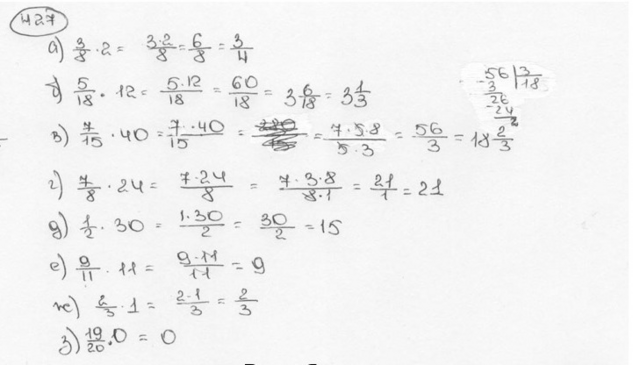 427
а) 3/8 · 2 = 3·2/8 = 6/8 = 3/4
б) 5/18 · 12 = 5·12/18 = 60/18 = 3 6/18 = 3 1/3
в) 7/15 · 40 = 7·40/15 = = 7·5·8/5·3 = 56/3 = 18 2/3
56 | 3
- 3 | 18
26
- 24
2
г) 7/8 · 24 = 7·24/8 = 7·3·8/8·1 = 21/1 = 21
д) 1/2 · 30 = 1·30/2 = 30/2 = 15
е) 9/11 · 11 = 9·11/11 = 9
ж) 2/3 · 1 = 2·1/3 = 2/3
з) 19/20 · 0 = 0